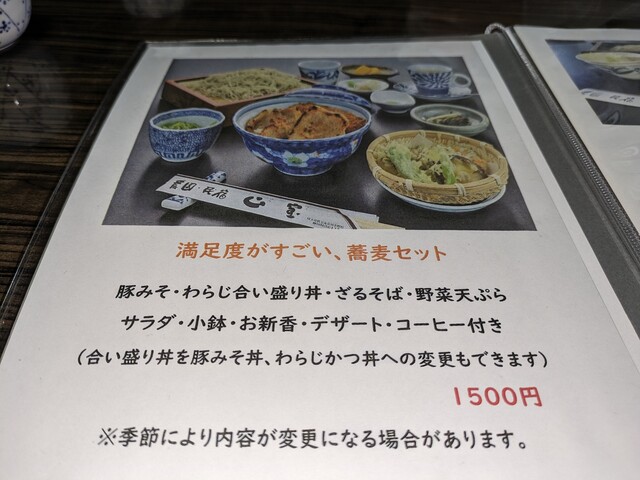 満足度がすごい、蕎麦セット
豚みそ・わらじ合い盛り丼・ざるそば・野菜天ぷら
サラダ・小鉢・お新香・デザート・コーヒー付き
(合い盛り丼を豚みそ丼、わらじかつ丼への変更もできます)
1500円
※季節により内容が変更になる場合があります。